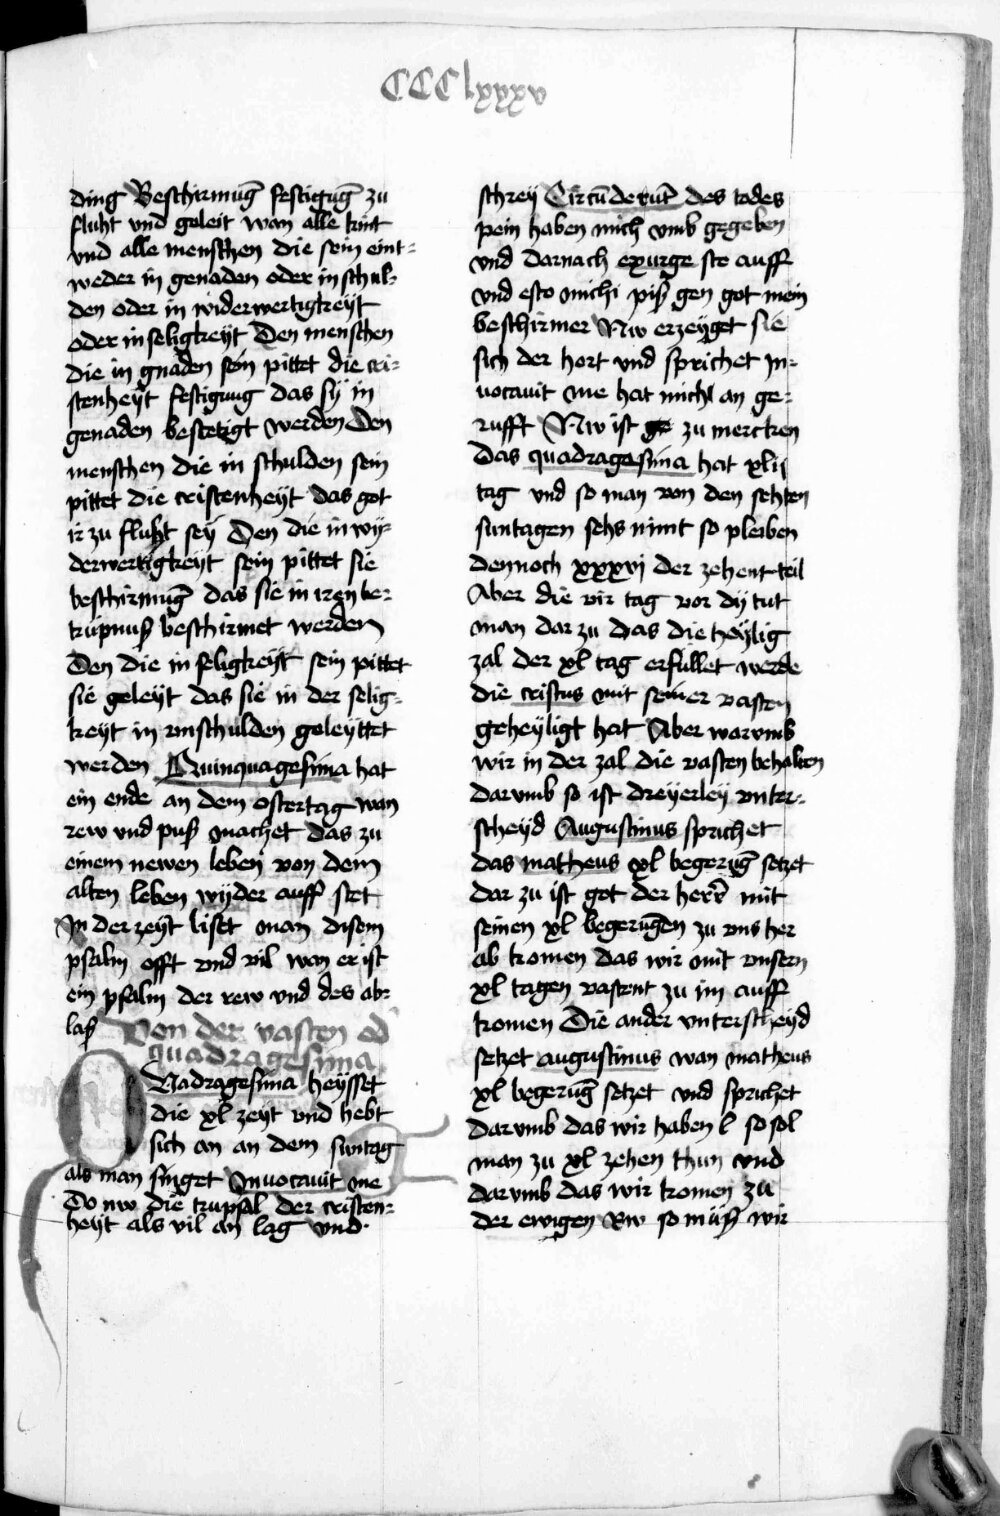 CCClxxxv
ding Beschirmug̅ festigug̅ zu
fluht vnd geleit wan alle kint
vnd alle menschen die sein eint-
weder in genaden oder in schul-
den oder in widerwertigkeyt
oder in seligkeyt Den menschen
die in gnaden sein pittet die cri-
stenheyt festigung das sy in
genaden bestetigt werden Den
menschen die in schulden sein
pittet die cristenheyt das got
ir zu fluht sey Den die in wy-
derwertigkeyt sein pittet sie
beschirmug̅ das sie in iren be-
trupnuß beschirmet werden
Den die in seligkeyt sein pittet
sie geleyt das sie in der selig-
keyt in vnschulden geleyttet
werden Quinquagesima hat
ein ende an dem ostertag wan
rew vnd puß machet das zu
einem newen leben von dem
alten leben wyder auff stet
In der zeyt liset man disem
psalm offt vnd vil wan er ist
ein psalm der rew vnd des ab-
laß Von der vasten od̕
quadragesima
QUadragesima heysset
die xl zeyt vnd hebt
sich an an dem suntag
als man singet Inuocauit me
Do nw die trupsal der cristen-
heyt als vil an lag vnd
schrey Circu̅derut̅ des todes
pein haben mich vmb gegeben
vnd darnach exurge ste auff
vnd esto michi piß gen got mein
beschirmer Nw erzeyget sie
sich der hort vnd sprichet In-
uocauit me hat mich an ge-
rufft Nw ist ge zu mercken
Das quadragesima hat xlij
tag vnd so man von den sehsten
suntagen sehs nimt so pleiben
dennoch xxxvj der zehent teil
Aber die vir tag vor dy tut
man dar zu das die heylig
zal der xl tag erfullet werde
die cristus mit seiner vasten
geheyligt hat Aber warvmb
wir in der zal die vasten behalten
darvmb so ist dreyerley vnter-
scheyd Augustinus sprichet
das matheus xl begerug̅ setzet
dar zu ist got der herr̅ mit
seinen xl begerug̅en zu vns her
ab komen das wir mit vnsern
xl tagen vastent zu im auff
komen Die ander vnterscheyd
setzet augustinus wan matheus
xl begerug̅ setzet vnd sprichet
darvmb das wir haben l so sol
man zu xl zehen thun vnd
darvmb das wir komen zu
der ewigen Rw so müß wir